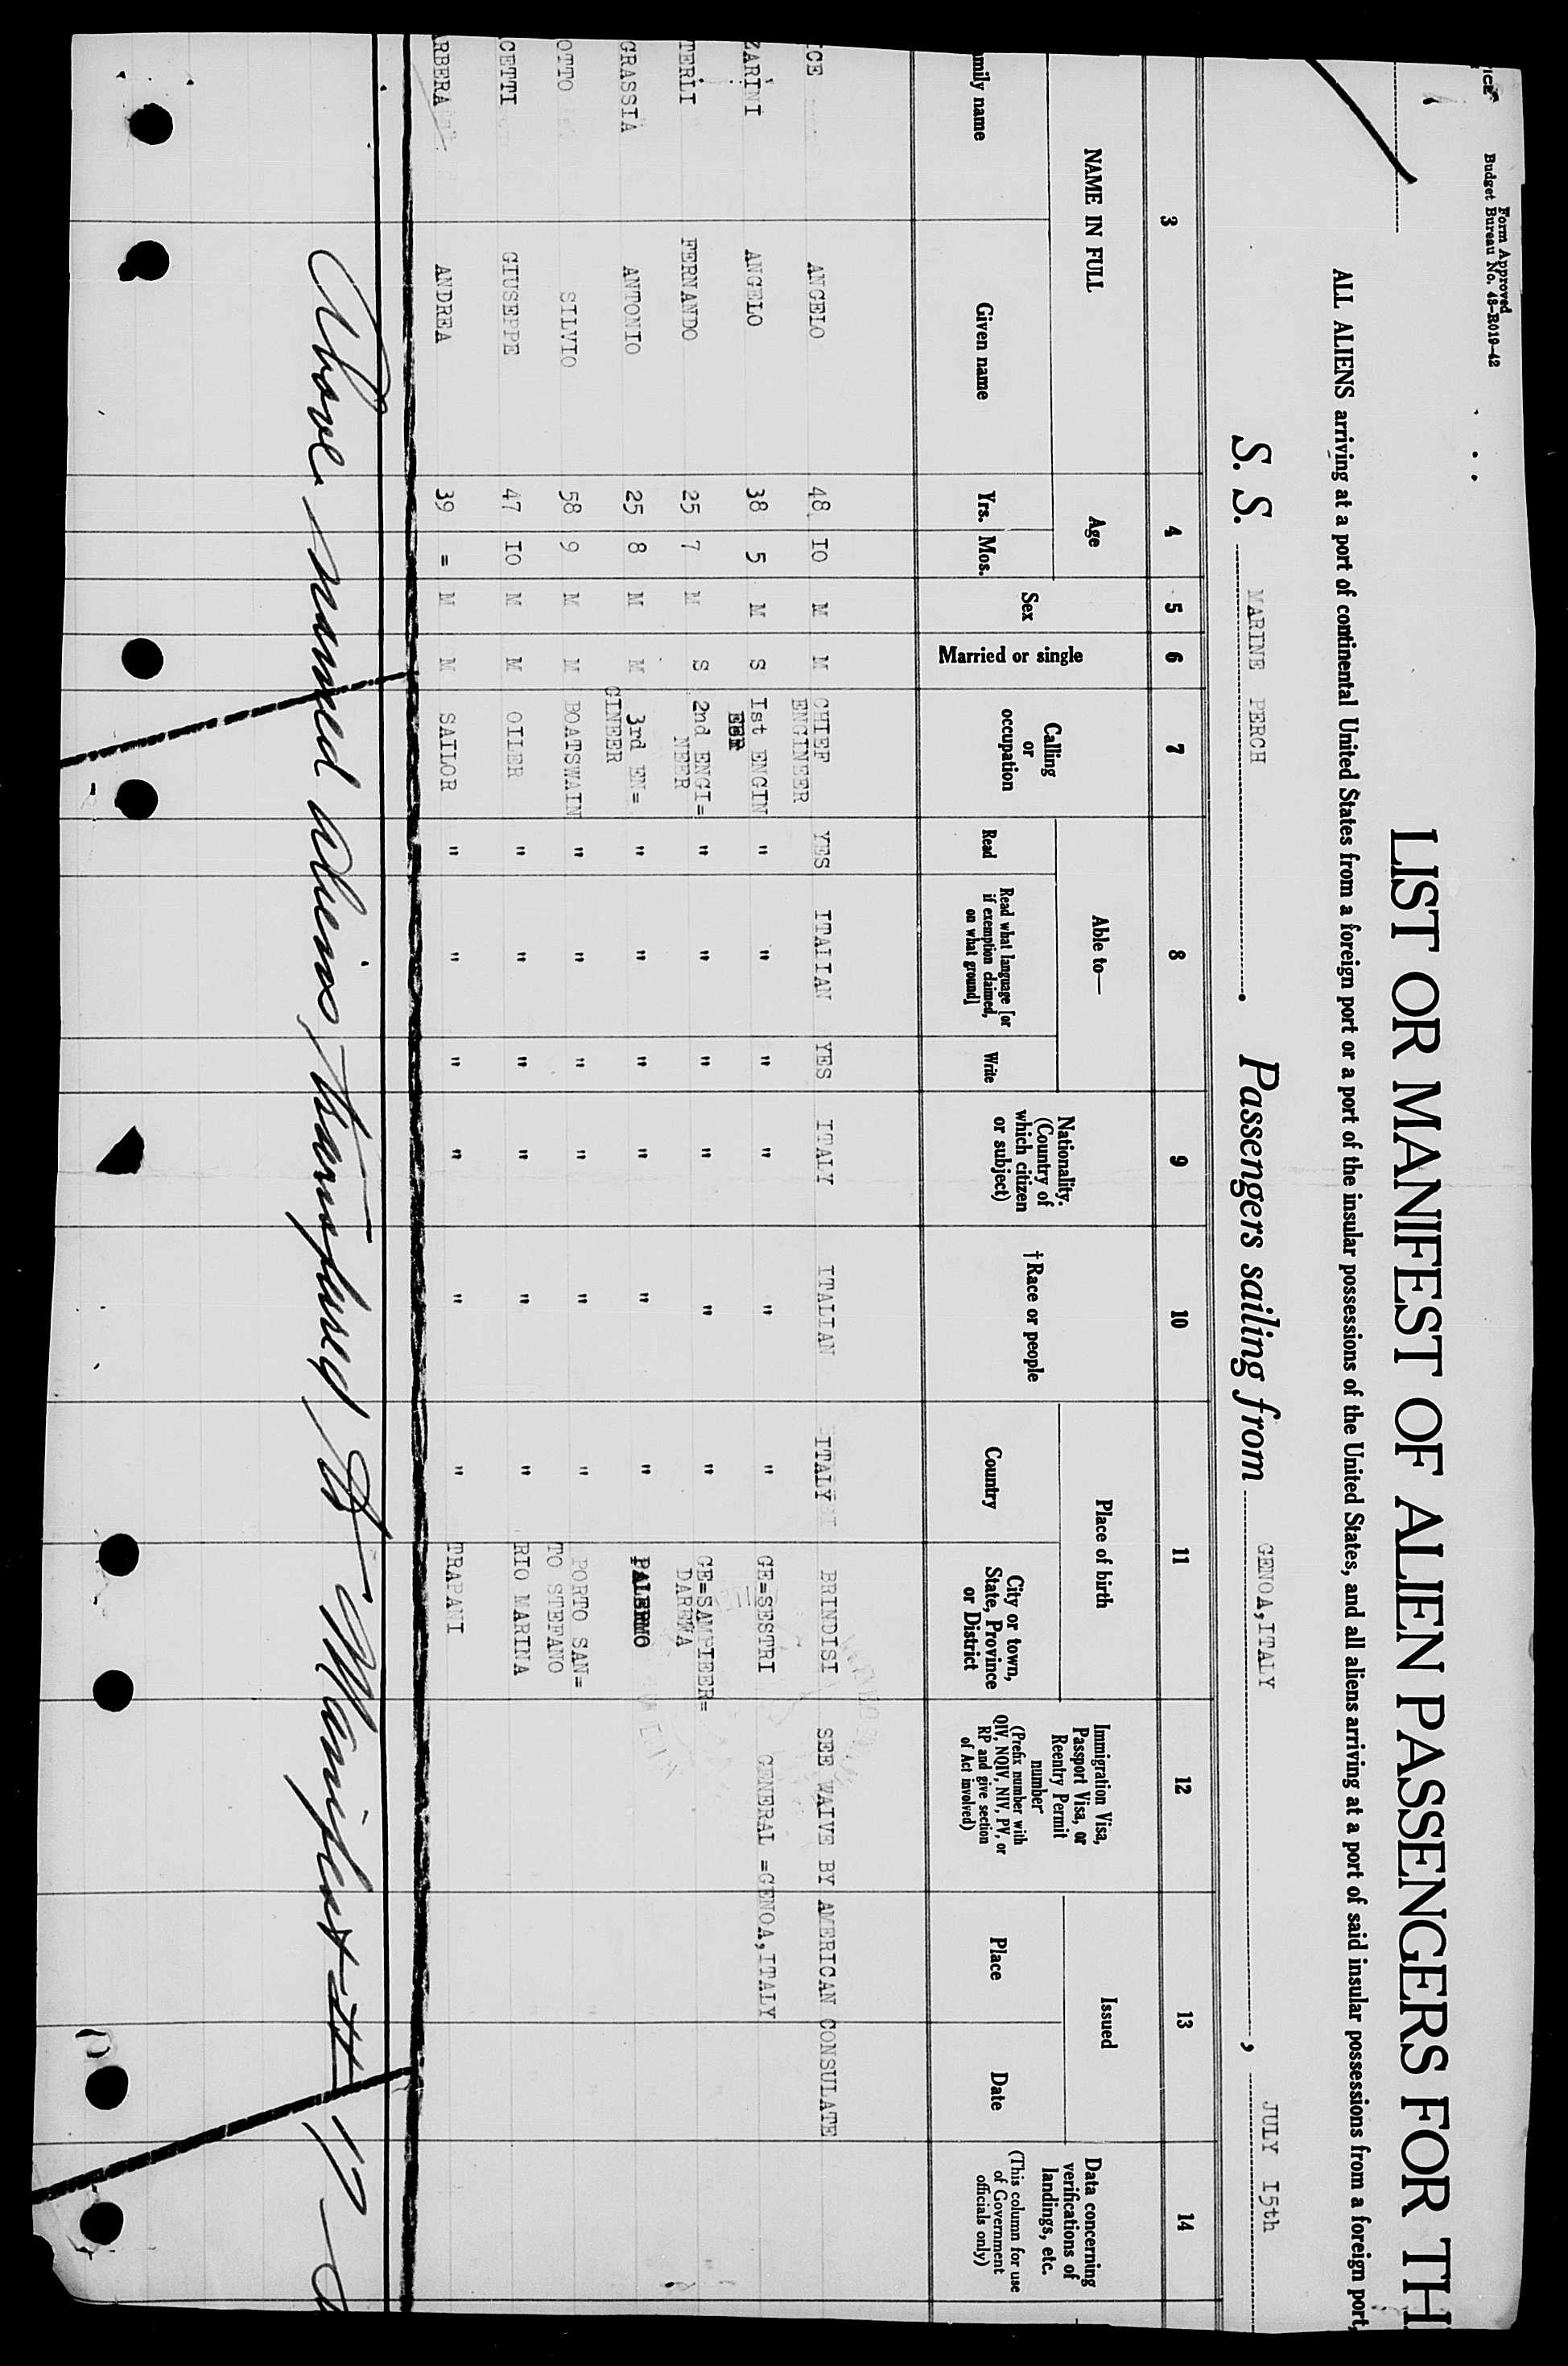 Form Approved
Budget Bureau No. 43-R019-42
LIST OR MANIFEST OF ALIEN PASSENGERS FOR TH
ALL ALIENS arriving at a port of continental United States from a foreign port or a port of the insular possessions of the United States, and all aliens arriving at a port of said insular possessions from a foreign port,
S. S. MARINE PERCH. Passengers sailing from GENOA,ITALY, JULY I5th
3 4 5 6 7 8 9 10 11 12 13 14
NAME IN FULL Age Sex Married or single Calling or occupation Able to— Nationality. (Country of which citizen or subject) †Race or people Place of birth Immigration Visa, Passport Visa, or Reentry Permit number (Prefix number with QIV, NQIV, NIV, PV, or RP and give section of Act involved) Issued Data concerning verifications of landings, etc. (This column for use of Government officials only)
mily name Given name Yrs. Mos. Read Read what language [or if exemption claimed, on what ground] Write Country City or town, State, Province or District Place Date
ICE ANGELO 48 IO M M CHIEF YES ITALIAN YES ITALY ITALIAN ITALY BRINDISI SEE WAIVE BY AMERICAN CONSULATE
ENGINEER
ZARINI ANGELO 38 5 M S Ist ENGIN " " " " " " GE=SESTRI GENERAL =GENOA,ITALY
EER
TERLI FERNANDO 25 7 M S 2nd ENGI= " " " " " " GE=SAMPIER=
NEER DARENA
GRASSIA ANTONIO 25 8 M M 3rd EN= " " " " " " PALERMO
GINEER
OTTO SILVIO 58 9 M M BOATSWAIN " " " " " " PORTO SAN=
TO STEFANO
CETTI GIUSEPPE 47 IO M M OILER " " " " " " RIO MARINA
RBERA ANDREA 39 = M M SAILOR " " " " " " TRAPANI
Above named aliens transferred to Manifest # 17